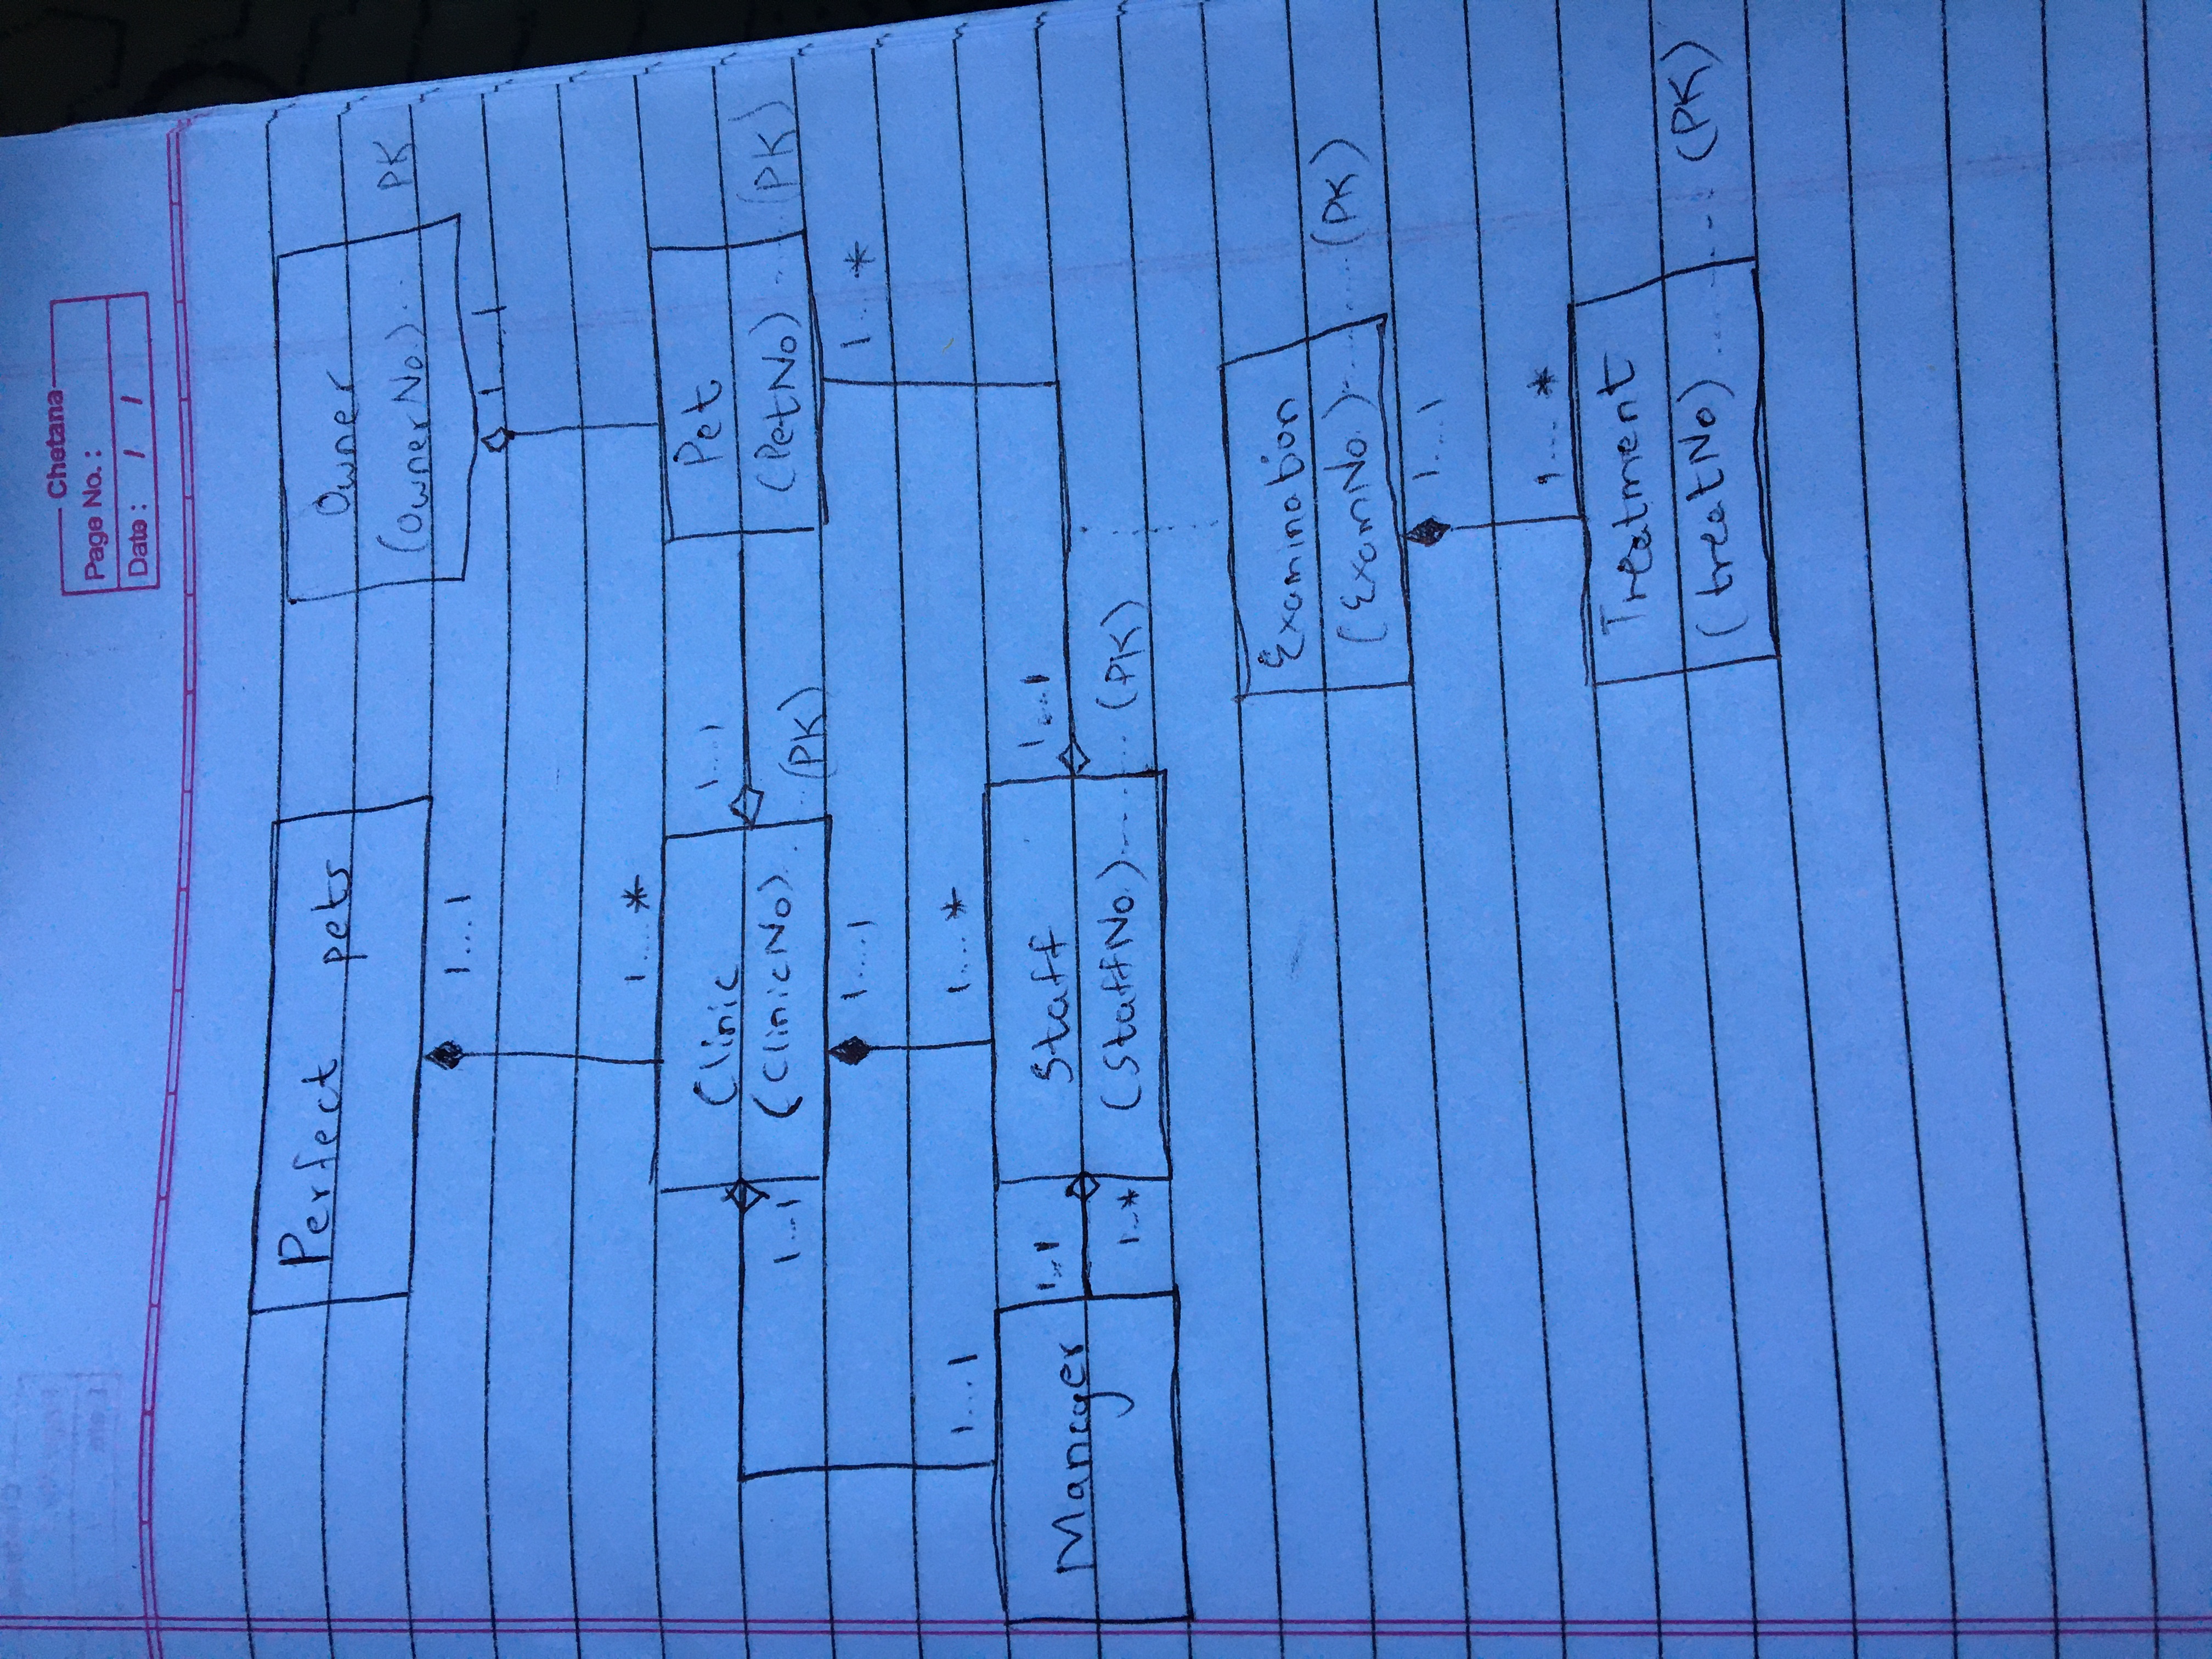 Chetana
Page No. :
Date : / /
Perfect pets
Owner
(OwnerNo.).. PK
1...1
1....1
1....*
Clinic
(ClinicNo)..... (PK)
1...1
Pet
(PetNo)...... (PK)
1...1
1....1
1....*
1...1
1....*
Manager
1..1
1..*
Staff
(StaffNo.)........ (PK)
1...1
Examination
(ExamNo.)......... (PK)
1....1
1....*
Treatment
(treatNo)......... (PK)